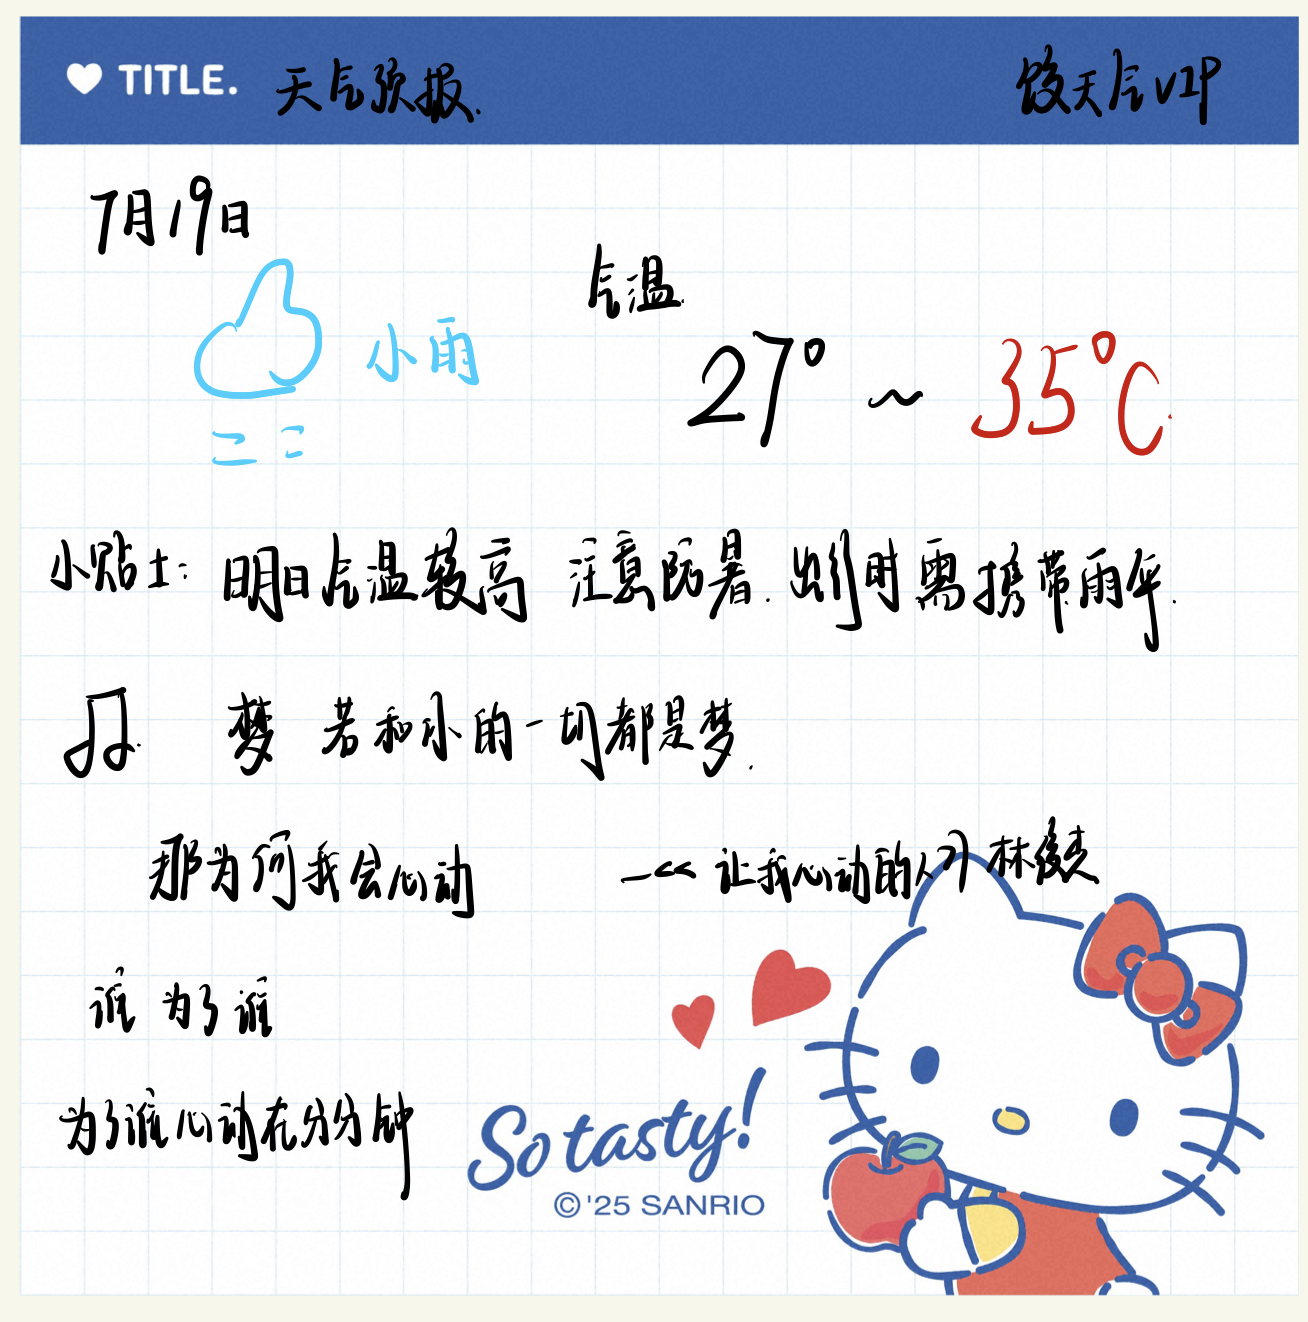 TITLE. 天气预报.
天气VIP
7月19日
气温
小雨
27° ~ 35℃
小贴士: 明日气温较高 注意防暑. 出行时需携带雨伞.
梦 若和你的一切都是梦.
那为何我会心动 —<< 让我心动的人>> 林俊杰
谁 为了谁
为了谁心动在分分钟
So tasty!
©'25 SANRIO